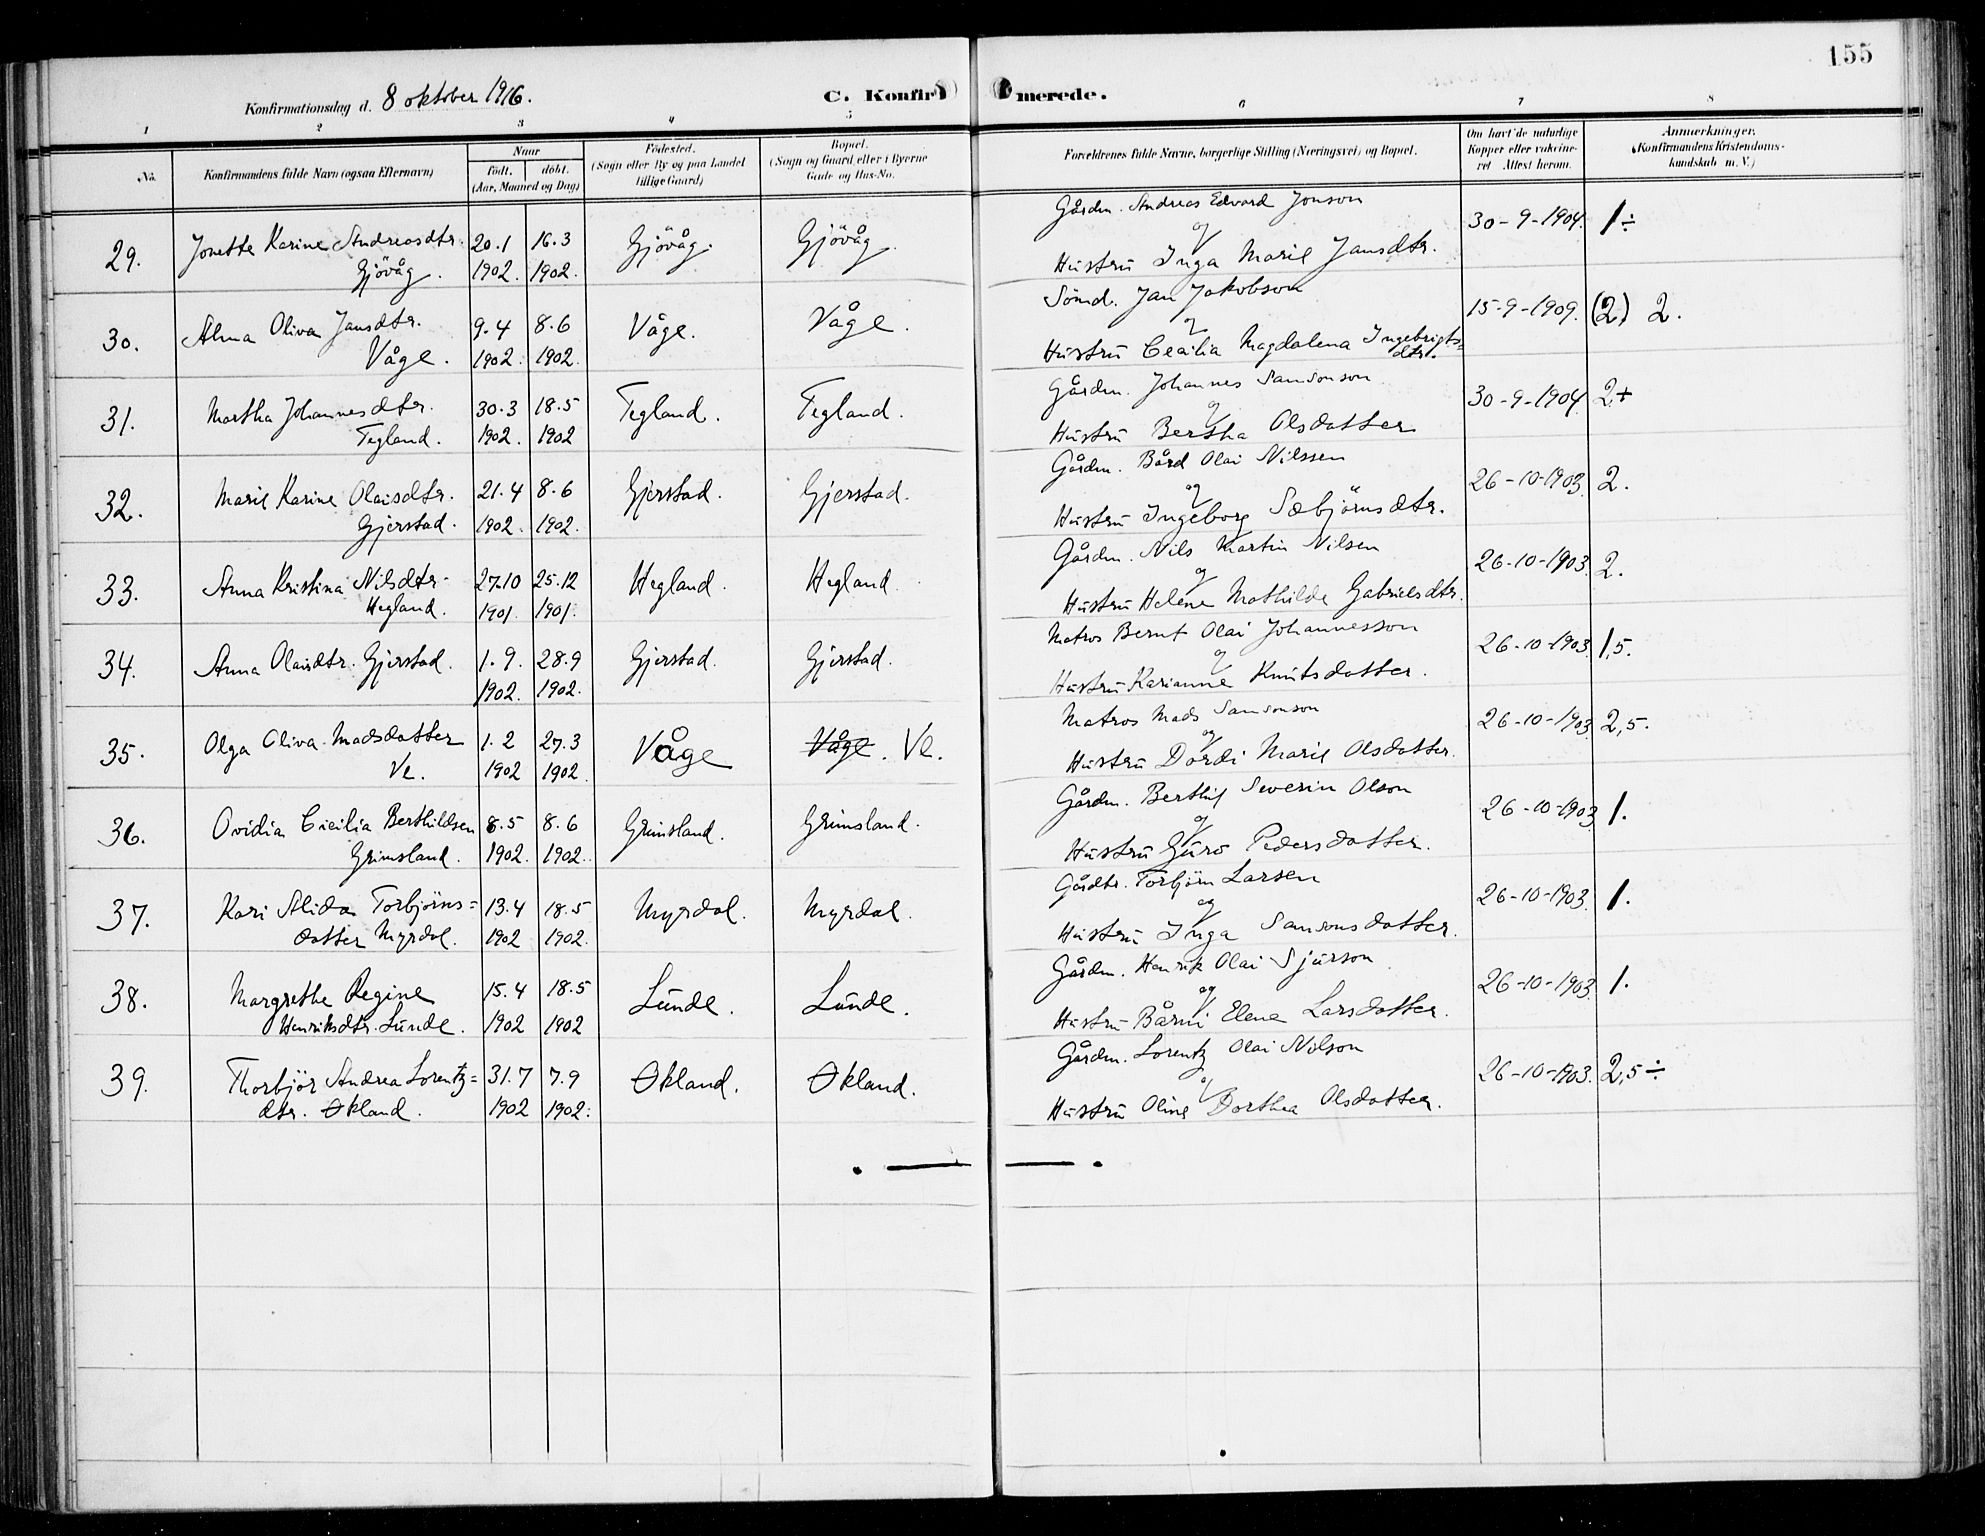 155
Konfirmationsdag d. 8 oktober 1916.
C. Konfirmerede.
1 2 3 4 5 6 7 8
No.
Konfirmandens fulde Navn (ogsaa Efternavn)
Naar
født. døbt.
(Aar, Maaned og Dag)
Fødested.
(Sogn eller By og paa Landet
tillige Gaard)
Bopæl.
(Sogn og Gaard eller i Byerne
Gade og Hus-No.
Forældrenes fulde Navne, borgerlige Stilling (Næringsvei) og Bopæl.
Om havt de naturlige
Kopper eller vakcine-
ret Attest herom.
Anmærkninger.
(Konfirmandens Kristendoms-
kundskab m. V.)
Gårdm. Andreas Edvard Jonson
29. Jonette Karine Andreasdtr. 20.1 16.3 Gjövåg. Gjövåg og 30-9-1904. 1÷
Gjövåg. 1902. 1902. Hustru Inga Marie Jansdtr.
Sömd. Jan Jakobson
30. Alma Oliva Jansdtr. 9.4 8.6 Våge. Våge. og 15-9-1909. (2) 2.
Våge. 1902 1902. Hustru Cecilia Magdalena Ingebrigts=
dtr.
Gårdm. Johannes Samsonson
31. Martha Johannesdtr. 30.3 18.5 Tegland. Tegland. og 30-9-1904. 2+
Tegland. 1902. 1902 Hustru Bertha Olsdatter
Gårdm. Bård Olai Nilssen
32. Marie Karine Olaisdtr. 21.4 8.6 Gjerstad. Gjerstad. og 26-10-1903. 2.
Gjerstad. 1902. 1902. Hustru Ingeborg Sæbjörnsdtr.
Gårdm. Nils Martin Nilsen
33. Anna Kristina Nilsdtr. 27.10 25.12 Hegland. Hegland. og 26-10-1903. 2.
Hegland. 1901. 1901. Hustru Helene Mathilde Gabrielsdtr.
Matros Bernt Olai Johannesson
34. Anna Olaisdtr. Gjerstad. 1.9. 28.9 Gjerstad. Gjerstad. og 26-10-1903. 1,5.
1902. 1902. Hustru Karianne Knutsdatter.
Matros Mads Samsonson
35. Olga Oliva Madsdatter 1.2 27.3 Våge Våge. Ve. og 26-10-1903. 2,5.
Ve. 1902 1902. Hustru Dordi Marie Olsdatter.
Gårdm. Berthil Severin Olson
36. Ovidia Cicilia Berthildsen 8.5 8.6 Grimsland. Grimsland. og 26-10-1903. 1.
Grimsland. 1902. 1902. Hustru Guro Pedersdatter.
Gårdbr. Torbjörn Larsen
37. Kari Alida Torbjörns= 13.4 18.5 Myrdal. Myrdal. og 26-10-1903. 1.
datter Myrdal. 1902 1902. Hustru Inga Samsonsdatter.
Gårdm. Henrik Olai Sjurson
38. Margrethe Regine 15.4 18.5 Lunde. Lunde. og 26-10-1903. 1.
Henriksdtr. Lunde. 1902 1902 Hustru Bårni Elene Larsdatter.
Gårdm. Lorentz Olai Nilson
39. Thorbjör Andrea Lorentz= 31.7 7.9 Økland. Økland. og 26-10-1903. 2,5÷
dtr. Økland. 1902 1902. Hustru Oline Dorthea Olsdatter.